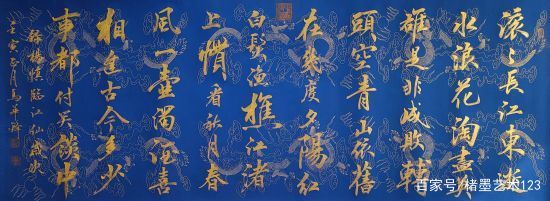 滾〻長江東逝
水浪花淘盡英
雄是非成敗轉
頭空青山依舊
在幾度夕陽紅
白髮漁樵江渚
上慣看秋月春
風一壺濁酒喜
相逢古今多少
事都付笑談中
錄楊慎臨江仙
壬寅
百家号/楮墨艺术123